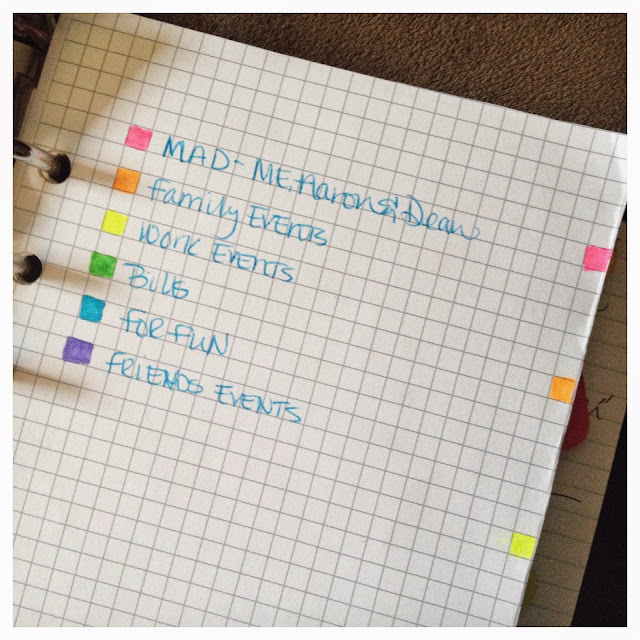 MAD - ME, Aaron & Dean
Family EVENTS
WORK EVENTS
BILLS
FOR FUN
FRIENDS EVENTS